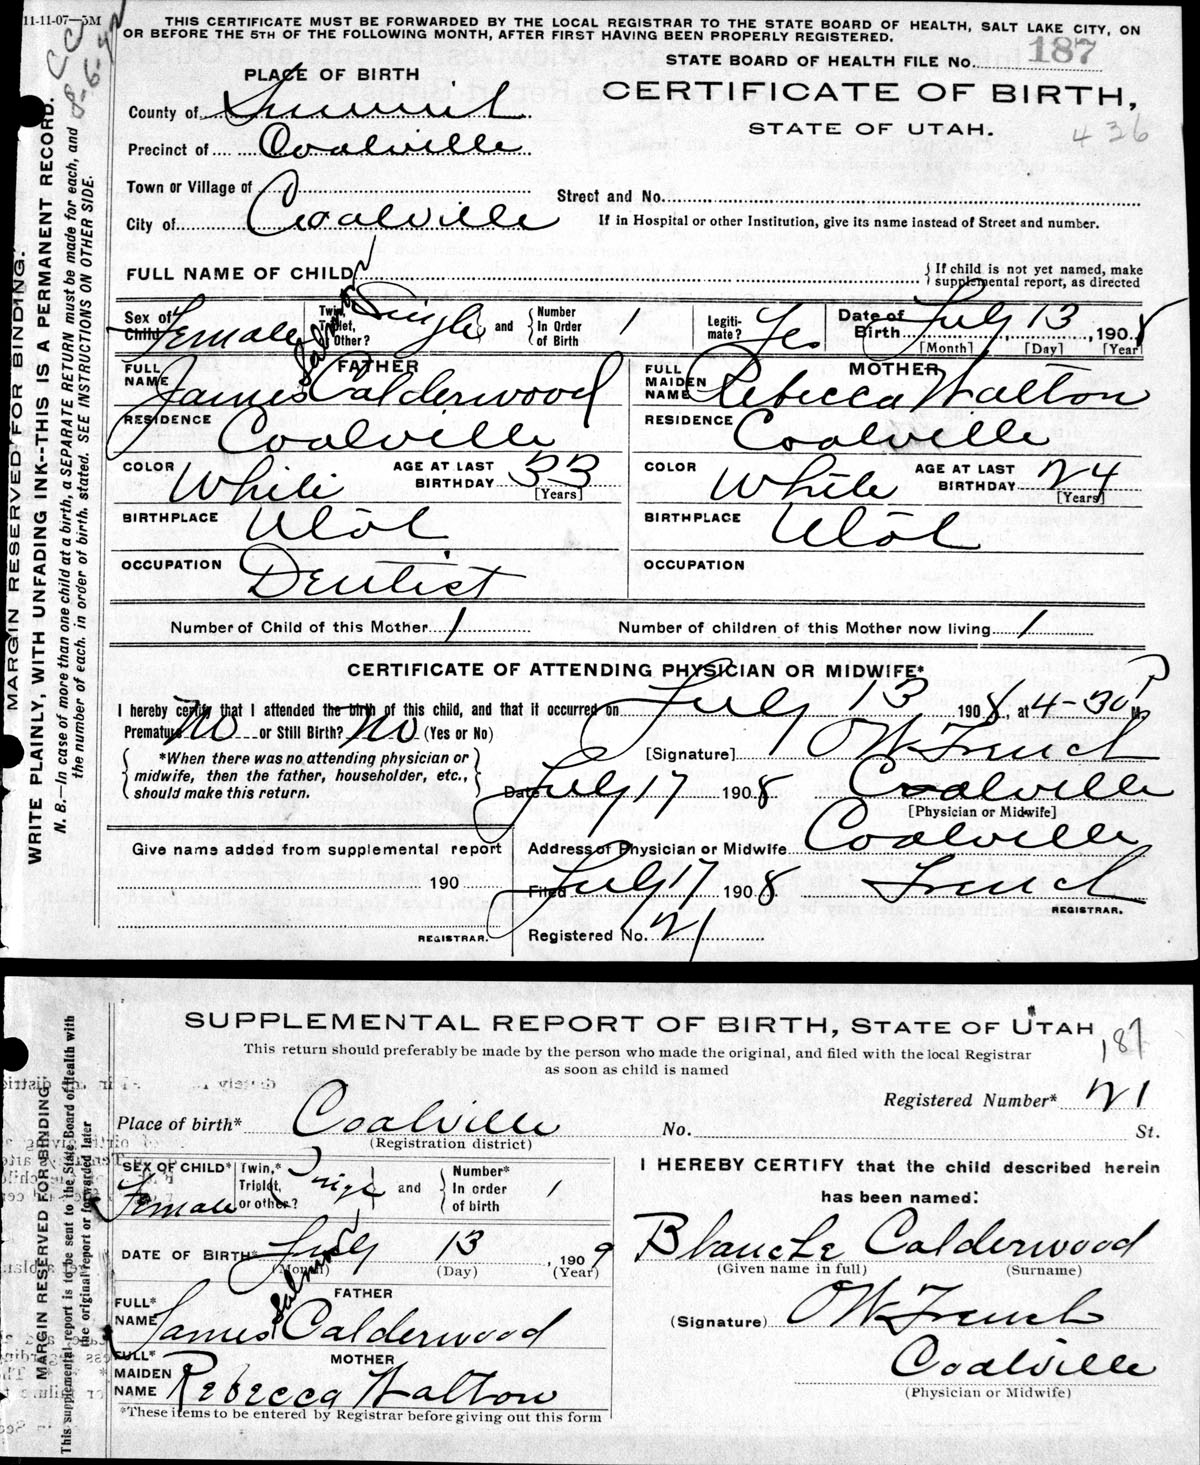 11-11-07—5M
THIS CERTIFICATE MUST BE FORWARDED BY THE LOCAL REGISTRAR TO THE STATE BOARD OF HEALTH, SALT LAKE CITY, ON
OR BEFORE THE 5TH OF THE FOLLOWING MONTH, AFTER FIRST HAVING BEEN PROPERLY REGISTERED.
STATE BOARD OF HEALTH FILE No. 187
PLACE OF BIRTH
CERTIFICATE OF BIRTH,
STATE OF UTAH.
436
County of Summit
Precinct of Coalville
Town or Village of
Street and No.
City of Coalville
If in Hospital or other Institution, give its name instead of Street and number.
FULL NAME OF CHILD
If child is not yet named, make
supplemental report, as directed
Sex of Child Female
Twin, Triplet, or Other? Single and
Number In Order of Birth 1
Legitimate? Yes
Date of Birth July 13, 1908
[Month] [Day] [Year]
FATHER
FULL NAME James Salmon Calderwood
MOTHER
FULL MAIDEN NAME Rebecca Walton
RESIDENCE Coalville
RESIDENCE Coalville
COLOR White AGE AT LAST BIRTHDAY 33 [Years]
COLOR White AGE AT LAST BIRTHDAY 24 [Years]
BIRTHPLACE Utah
BIRTHPLACE Utah
OCCUPATION Dentist
OCCUPATION
Number of Child of this Mother 1
Number of children of this Mother now living 1
CERTIFICATE OF ATTENDING PHYSICIAN OR MIDWIFE*
I hereby certify that I attended the birth of this child, and that it occurred on July 13 1908, at 4-30 P M.
Premature No or Still Birth? No (Yes or No)
*When there was no attending physician or
midwife, then the father, householder, etc.,
should make this return.
[Signature] O W French
Date July 17 1908 Coalville
[Physician or Midwife]
Give name added from supplemental report
Address of Physician or Midwife Coalville
190
Filed July 17 1908 French
REGISTRAR.
REGISTRAR.
Registered No. 21
MARGIN RESERVED FOR BINDING.
WRITE PLAINLY, WITH UNFADING INK--THIS IS A PERMANENT RECORD.
N. B.—In case of more than one child at a birth, a SEPARATE RETURN must be made for each, and
the number of each, in order of birth, stated. SEE INSTRUCTIONS ON OTHER SIDE.
SUPPLEMENTAL REPORT OF BIRTH, STATE OF UTAH
187
This return should preferably be made by the person who made the original, and filed with the local Registrar
as soon as child is named
Registered Number* 21
Place of birth* Coalville
No. St.
(Registration district)
SEX OF CHILD* Female
Twin,* Triplet, or other? Single and
Number* In order of birth 1
I HEREBY CERTIFY that the child described herein
has been named:
DATE OF BIRTH* July 13, 1909
(Month) (Day) (Year)
Blanche Calderwood
(Given name in full) (Surname)
FATHER
FULL* NAME James Salmon Calderwood
(Signature) O W French
Coalville
(Physician or Midwife)
MOTHER
FULL* MAIDEN NAME Rebecca Walton
*These items to be entered by Registrar before giving out this form
MARGIN RESERVED FOR BINDING
This supplemental report is to be sent to the State Board of Health with
the original report or forwarded later